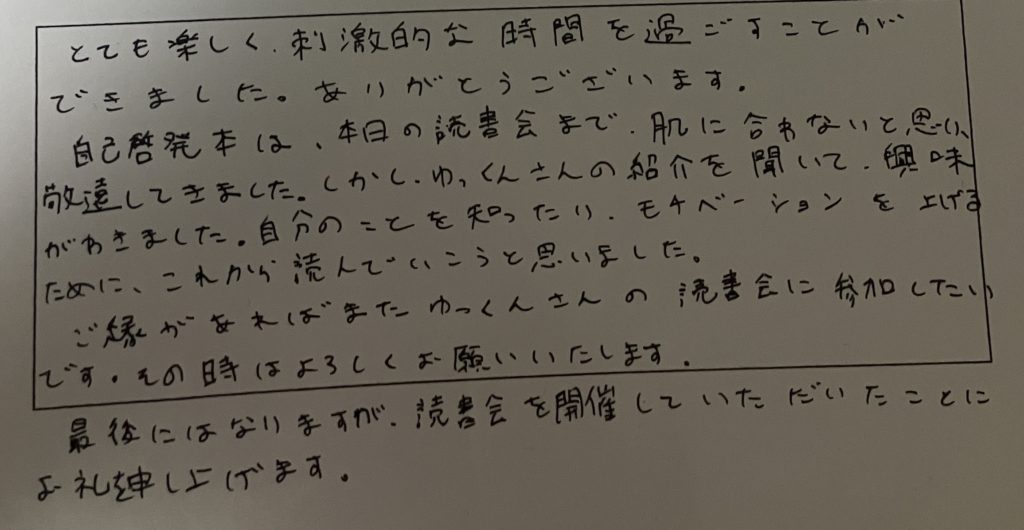 とても楽しく、刺激的な時間を過ごすことが
できました。ありがとうございます。
自己啓発本は、本日の読書会まで、肌に合わないと思い、
敬遠してきました。しかし、ゆっくんさんの紹介を聞いて、興味
がわきました。自分のことを知ったり、モチベーションを上げる
ために、これから読んでいこうと思いました。
ご縁があればまたゆっくんさんの読書会に参加したい
です。その時はよろしくお願いいたします。
最後にはなりますが、読書会を開催していただいたことに
お礼を申し上げます。